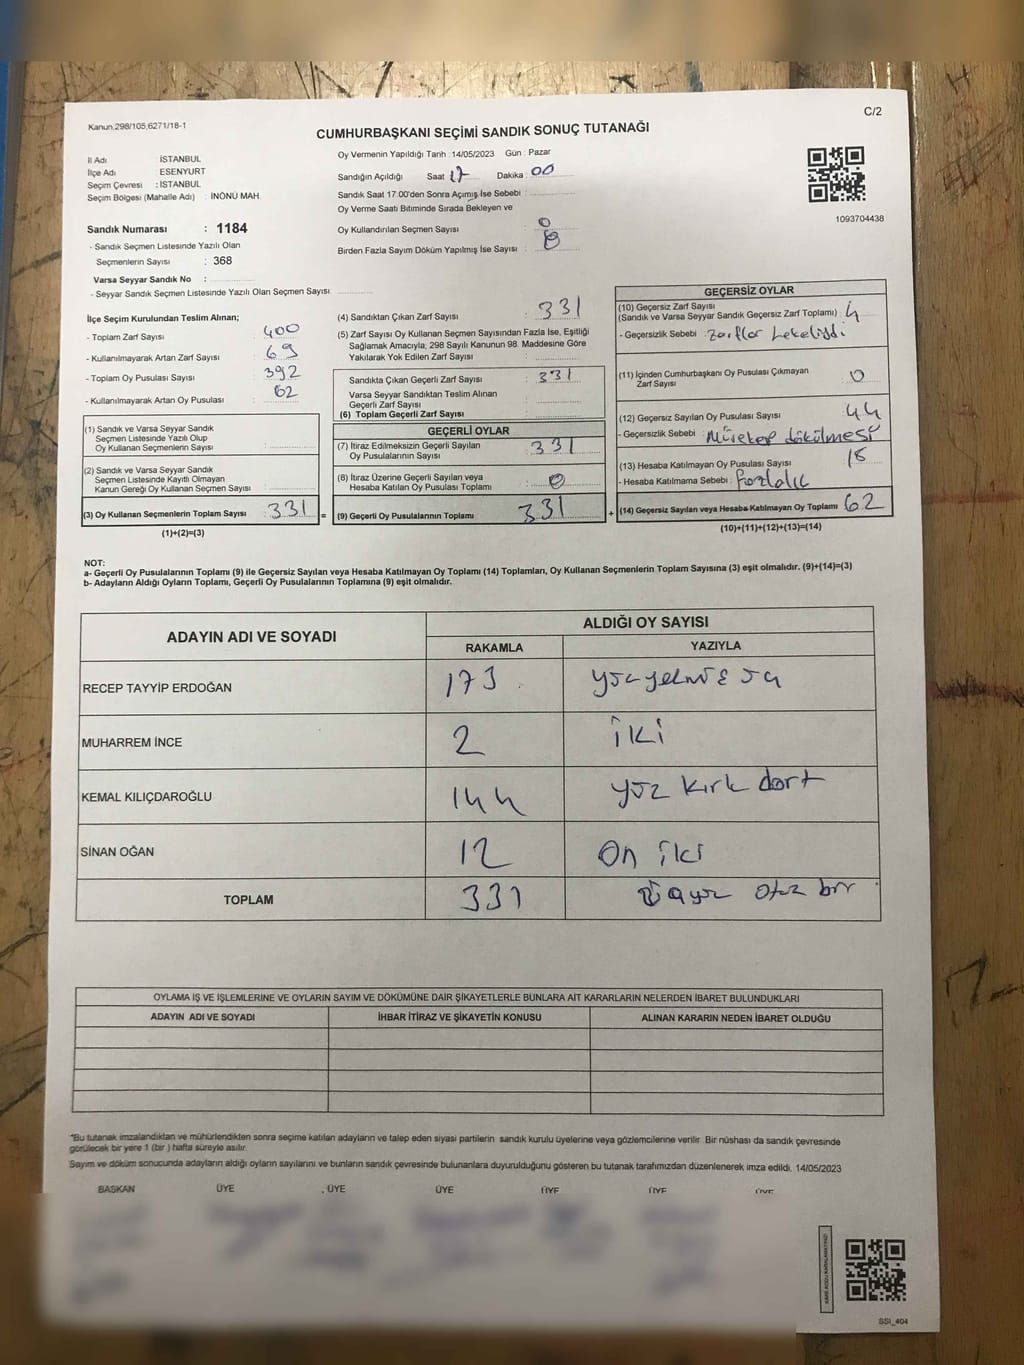 C/2
Kanun.298/105,6271/18-1
CUMHURBAŞKANI SEÇİMİ SANDIK SONUÇ TUTANAĞI
İl Adı İSTANBUL
İlçe Adı ESENYURT
Seçim Çevresi : İSTANBUL
Seçim Bölgesi (Mahalle Adı) : İNÖNÜ MAH.
Oy Vermenin Yapıldığı Tarih : 14/05/2023 Gün : Pazar
Sandığın Açıldığı Saat 17 Dakika : 00
Sandık Saat 17.00'den Sonra Açılmış İse Sebebi :
Oy Verme Saati Bitiminde Sırada Bekleyen ve
Oy Kullandırılan Seçmen Sayısı : 0
Birden Fazla Sayım Döküm Yapılmış İse Sayısı :
1093704438
Sandık Numarası : 1184
- Sandık Seçmen Listesinde Yazılı Olan
Seçmenlerin Sayısı : 368
Varsa Seyyar Sandık No :
- Seyyar Sandık Seçmen Listesinde Yazılı Olan Seçmen Sayısı:
İlçe Seçim Kurulundan Teslim Alınan;
- Toplam Zarf Sayısı : 400
- Kullanılmayarak Artan Zarf Sayısı : 69
- Toplam Oy Pusulası Sayısı : 392
- Kullanılmayarak Artan Oy Pusulası : 62
(1) Sandık ve Varsa Seyyar Sandık
Seçmen Listesinde Yazılı Olup
Oy Kullanan Seçmenlerin Sayısı :
(2) Sandık ve Varsa Seyyar Sandık
Seçmen Listesinde Kayıtlı Olmayan
Kanun Gereği Oy Kullanan Seçmen Sayısı :
(3) Oy Kullanan Seçmenlerin Toplam Sayısı : 331 =
(1)+(2)=(3)
(4) Sandıktan Çıkan Zarf Sayısı : 331
(5) Zarf Sayısı Oy Kullanan Seçmen Sayısından Fazla İse, Eşitliği
Sağlamak Amacıyla; 298 Sayılı Kanunun 98. Maddesine Göre
Yakılarak Yok Edilen Zarf Sayısı :
Sandıkta Çıkan Geçerli Zarf Sayısı : 331
Varsa Seyyar Sandıktan Teslim Alınan
Geçerli Zarf Sayısı :
(6) Toplam Geçerli Zarf Sayısı :
GEÇERLİ OYLAR
(7) İtiraz Edilmeksizin Geçerli Sayılan
Oy Pusulalarının Sayısı : 331
(8) İtiraz Üzerine Geçerli Sayılan veya
Hesaba Katılan Oy Pusulası Toplamı : 0
(9) Geçerli Oy Pusulalarının Toplamı : 331 +
GEÇERSİZ OYLAR
(10) Geçersiz Zarf Sayısı
(Sandık ve Varsa Seyyar Sandık Geçersiz Zarf Toplamı) : 4
- Geçersizlik Sebebi : Zarflar Lekeliydi
(11) İçinden Cumhurbaşkanı Oy Pusulası Çıkmayan
Zarf Sayısı : 0
(12) Geçersiz Sayılan Oy Pusulası Sayısı : 44
- Geçersizlik Sebebi : Mürekep dökülmesi
(13) Hesaba Katılmayan Oy Pusulası Sayısı 18
- Hesaba Katılmama Sebebi : fazlalık
(14) Geçersiz Sayılan veya Hesaba Katılmayan Oy Toplamı 62
(10)+(11)+(12)+(13)=(14)
NOT:
a- Geçerli Oy Pusulalarının Toplamı (9) ile Geçersiz Sayılan veya Hesaba Katılmayan Oy Toplamı (14) Toplamları, Oy Kullanan Seçmenlerin Toplam Sayısına (3) eşit olmalıdır. (9)+(14)=(3)
b- Adayların Aldığı Oyların Toplamı, Geçerli Oy Pusulalarının Toplamına (9) eşit olmalıdır.
ADAYIN ADI VE SOYADI
ALDIĞI OY SAYISI
RAKAMLA YAZIYLA
RECEP TAYYİP ERDOĞAN 173
MUHARREM İNCE 2 iki
KEMAL KILIÇDAROĞLU 144 yüz kırk dört
SİNAN OĞAN 12 On iki
TOPLAM 331 Üçyüz otuz bir
OYLAMA İŞ VE İŞLEMLERİNE VE OYLARIN SAYIM VE DÖKÜMÜNE DAİR ŞİKAYETLERLE BUNLARA AİT KARARLARIN NELERDEN İBARET BULUNDUKLARI
ADAYIN ADI VE SOYADI İHBAR İTİRAZ VE ŞİKAYETİN KONUSU ALINAN KARARIN NEDEN İBARET OLDUĞU
*Bu tutanak imzalandıktan ve mühürlendikten sonra seçime katılan adayların ve talep eden siyasi partilerin sandık kurulu üyelerine veya gözlemcilerine verilir. Bir nüshası da sandık çevresinde
görülecek bir yere 1 (bir ) hafta süreyle asılır.
Sayım ve döküm sonucunda adayların aldığı oyların sayılarını ve bunların sandık çevresinde bulunanlara duyurulduğunu gösteren bu tutanak tarafımızdan düzenlenerek imza edildi. 14/05/2023
BAŞKAN ÜYE ÜYE ÜYE ÜYE ÜYE ÜYE
SSI_404